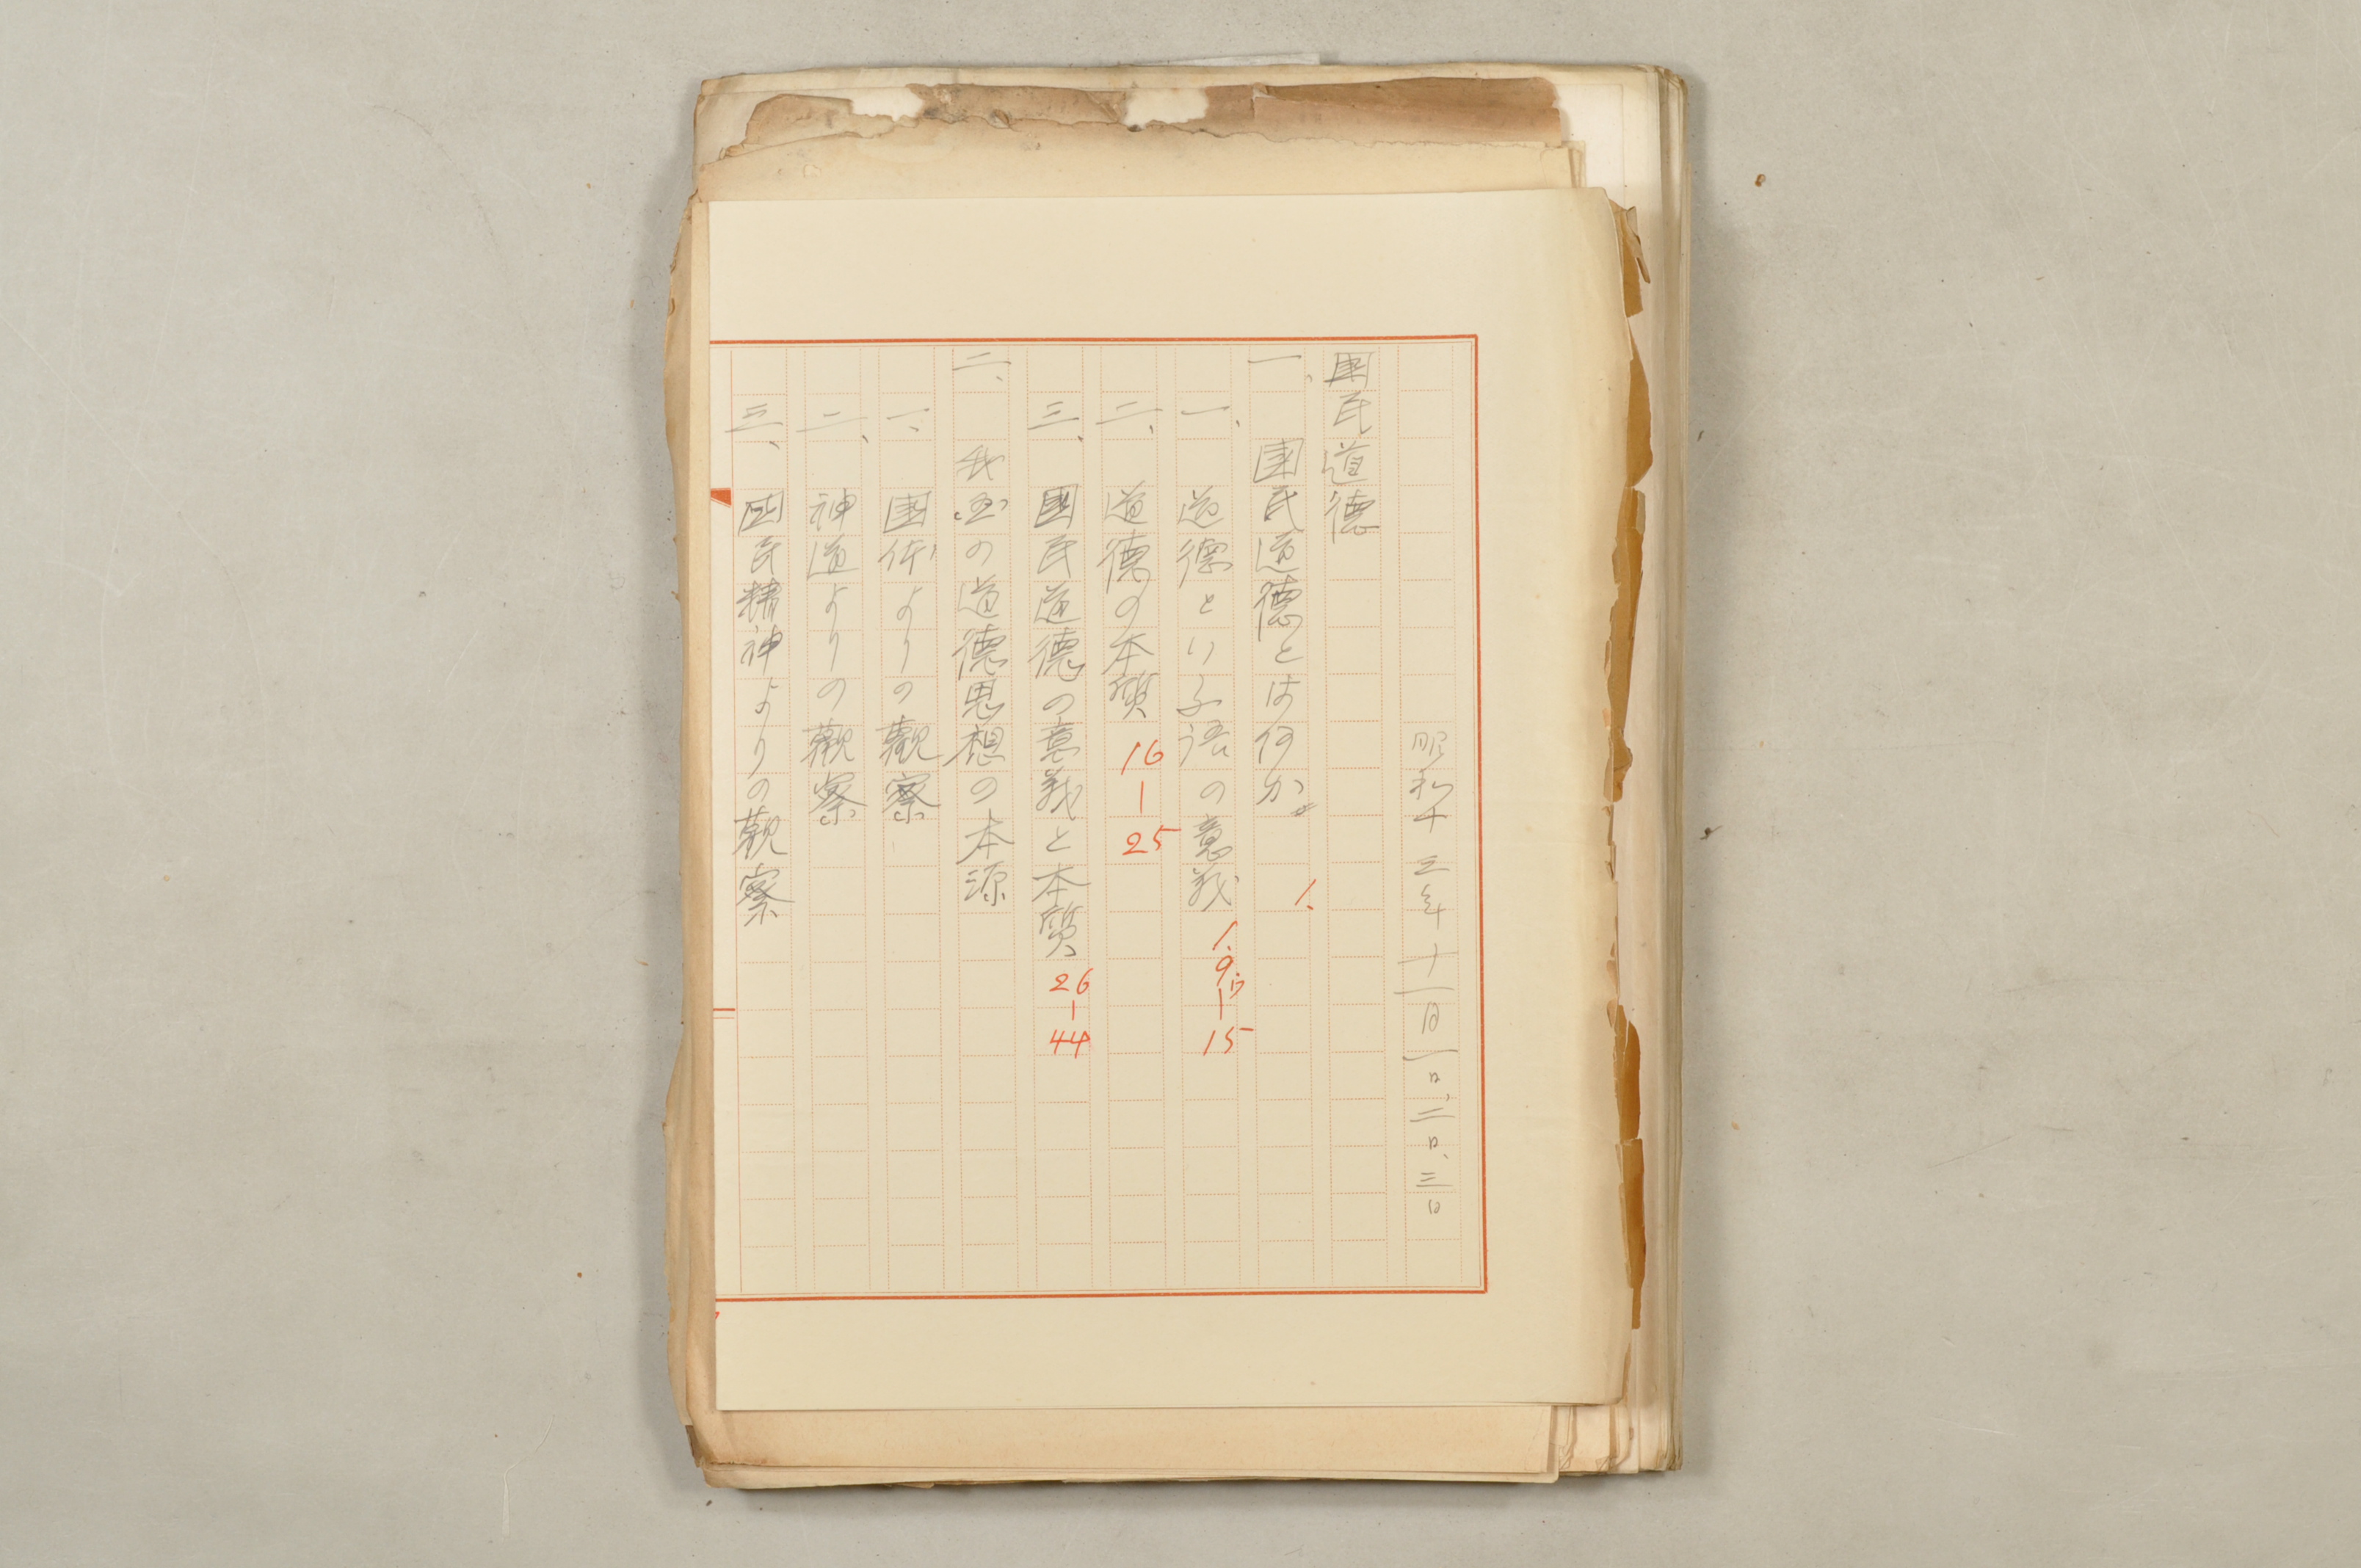 昭和十三年十一月一日、二日、三日
國民道德
一、國民道德とは何か。 1、
一、道德といふ語の意義 1.9、ワ|15
二、道德の本質 16|25
三、國民道德の意義と本質 26|44
二、我が国の道德思想の本源
一、國体よりの觀察
二、神道よりの觀察
三、国民精神よりの觀察